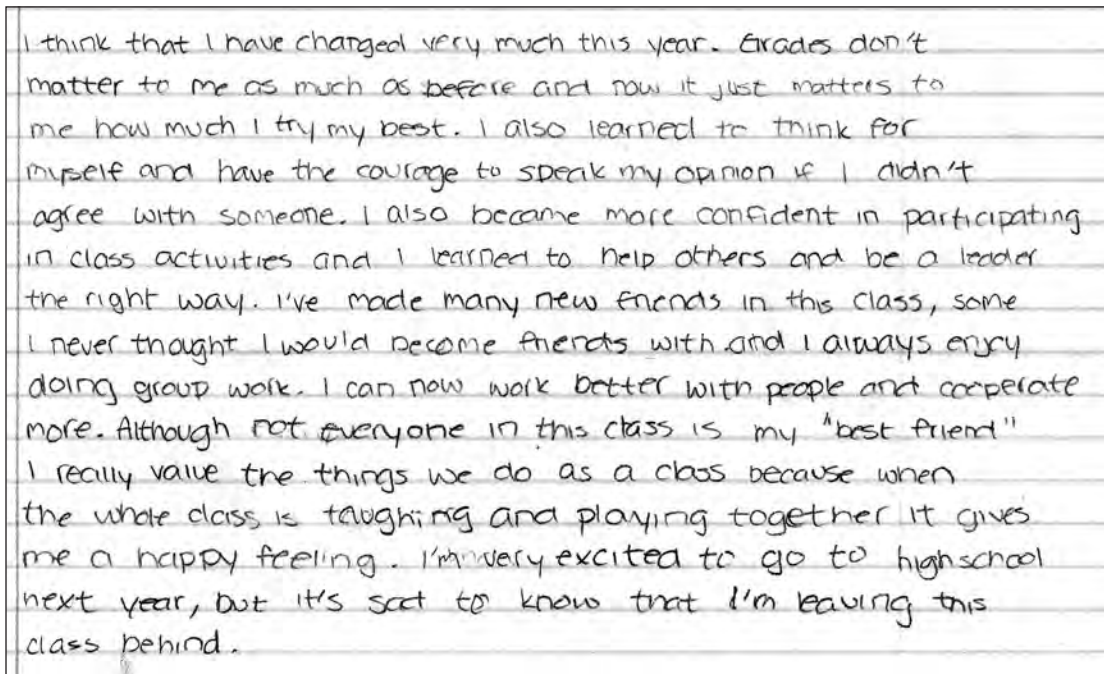 I think that I have changed very much this year. Grades don't
matter to me as much as before and now it just matters to
me how much I try my best. I also learned to think for
myself and have the courage to speak my opinion if I didn't
agree with someone. I also became more confident in participating
in class activities and I learned to help others and be a leader
the right way. I've made many new friends in this class, some
I never thought I would become friends with and I always enjoy
doing group work. I can now work better with people and cooperate
more. Although not everyone in this class is my "best friend"
I really value the things we do as a class because when
the whole class is laughing and playing together it gives
me a happy feeling. I'm very excited to go to highschool
next year, but it's sad to know that I'm leaving this
class behind.